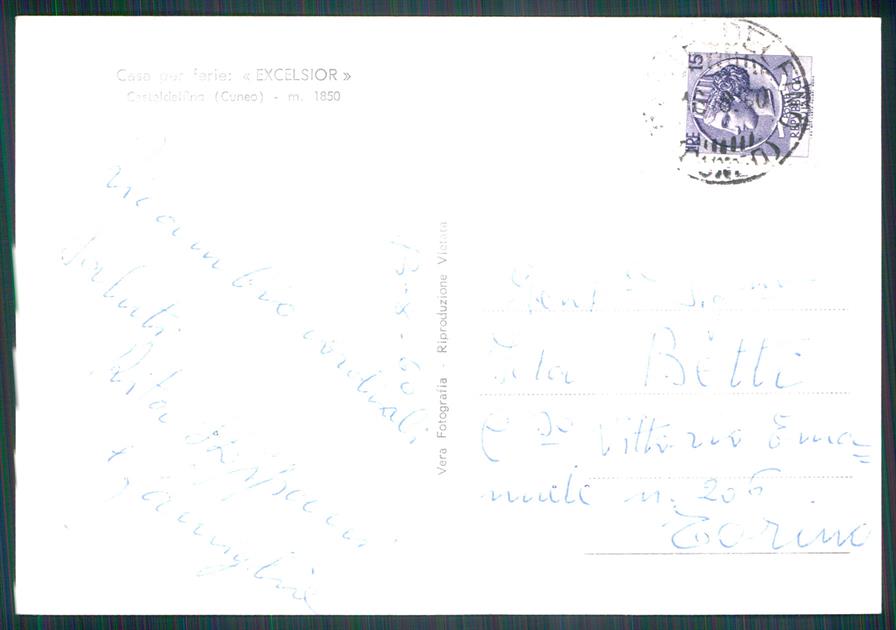 Casa per ferie: « EXCELSIOR »
Casteldelfino (Cuneo) - m. 1850
Ricambio cordiali
saluti
Rita
e famiglia
13-8-60
Vera Fotografia - Riproduzione Vietata
LIRE 15
Gent
Betti
C so Vittorio Ema=
nuele n. 206
Torino